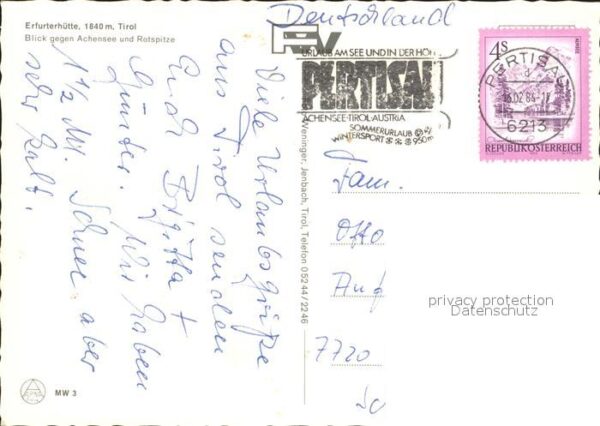 Erfurterhütte, 1840 m, Tirol
Blick gegen Achensee und Rotspitze
Viele Urlaubsgrüße
aus Tirol senden
Euch Brigitta +
Günter. Wir haben
1 1/2 M. Schnee aber
sehr kalt.
MW 3
Weninger, Jenbach, Tirol, Telefon 05244/2246
Deutschland
URLAUB AM SEE UND IN DER HÖH
PERTISAU
ACHENSEE-TIROL-AUSTRIA
SOMMERURLAUB
WINTERSPORT 950m
PERTISAU
6213
4S
REPUBLIK ÖSTERREICH
Fam.
Otto
Auf
7720
privacy protection
Datenschutz